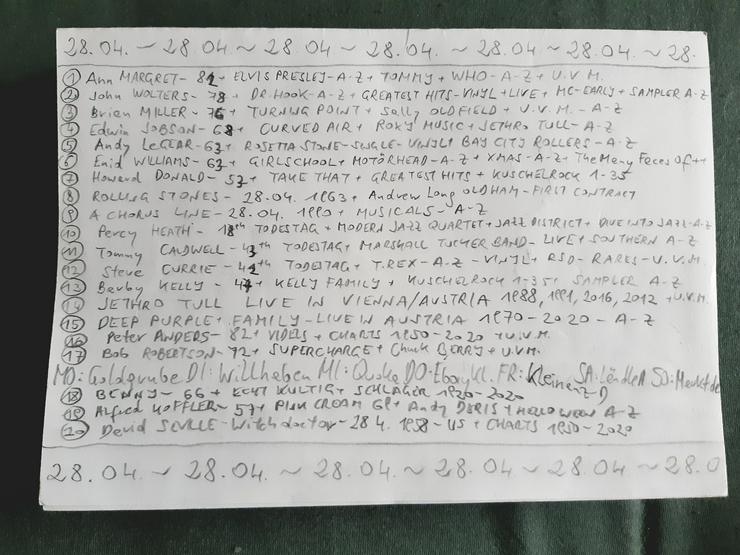 28.04. ~ 28.04 ~ 28.04 ~ 28.04. ~ 28.04 ~ 28.04 ~ 28.
① Ann MARGRET- 82+ ELVIS PRESLEY-A-Z+ TOMMY + WHO-A-Z+U.V.M.
② John WOLTERS- 78+ DR. HOOK-A-Z+ GREATEST HITS-VINYL+LIVE+ MC-EARLY+ SAMPLER A-Z
③ Brian MILLER- 76+ TURNING POINT+ Sally OLDFIELD+ U.V.M. - A-Z
④ Edwin JOBSON- 68+ CURVED AIR+ ROXY MUSIC+JETHRO TULL-A-Z
⑤ Andy LeGEAR-63+ ROSETTA STONE-SINGLE-VINYL+ BAY CITY ROLLERS-A-Z
⑥ Enid WILLIAMS-63+ GIRLSCHOOL+MOTÖRHEAD-A-Z+XMAS-A-Z+The Many Faces Of++
⑦ Howard DONALD-53+ TAKE THAT+GREATEST HITS+KUSCHELROCK 1-35
⑧ ROLLING STONES- 28.04. 1963+ Andrew Long OLDHAM-FIRST CONTRACT
⑨ A CHORUS LINE-28.04. 1990+ MUSICALS-A-Z
⑩ Percy HEATH- 18th TODESTAG+MODERN JAZZ QUARTET+JAZZ DISTRICT+DIVE INTO JAZZ-A-Z
⑪ Tommy CALDWELL-43th TODESTAG+MARSHALL TUCKER BAND-LIVE+SOUTHERN A-Z
⑫ Steve CURRIE-42th TODESTAG+T.REX-A-Z-VINYL+RSD-RARES-U.V.M.
⑬ Barby KELLY-47+ KELLY FAMILY+KUSCHELROCK 1-35+ SAMPLER A-Z
⑭ JETHRO TULL LIVE IN VIENNA/AUSTRIA 1988, 1991, 2016, 2012 +U.V.M.
⑮ DEEP PURPLE+ FAMILY-LIVE IN AUSTRIA 1970-2020-A-Z
⑯ Peter ANDERS-82+ VIDEIS+CHARTS 1950-2020 +U.V.M.
⑰ Bob ROBERTSON-72+SUPERCHARGE+Chuck BERRY+U.V.M.
MO: Goldgrube DI: Willhaben MI: Quoka DO: Ebay Kl. FR: Kleinanz.D SA: LändleA SO: Markt.de
⑱ BENNY-66+ECHT KULTIG+SCHLAGER 1920-2020
⑲ Alfred KOFFLER-57+PINK CREAM 69+Andy DERIS+HELLOWEEN A-Z
⑳ David SEVILLE-Witchdoctor-28.4. 1958-US+CHARTS 1950-2020
28.04. ~ 28.04. ~ 28.04. ~ 28.04 ~ 28.04 ~ 28.0